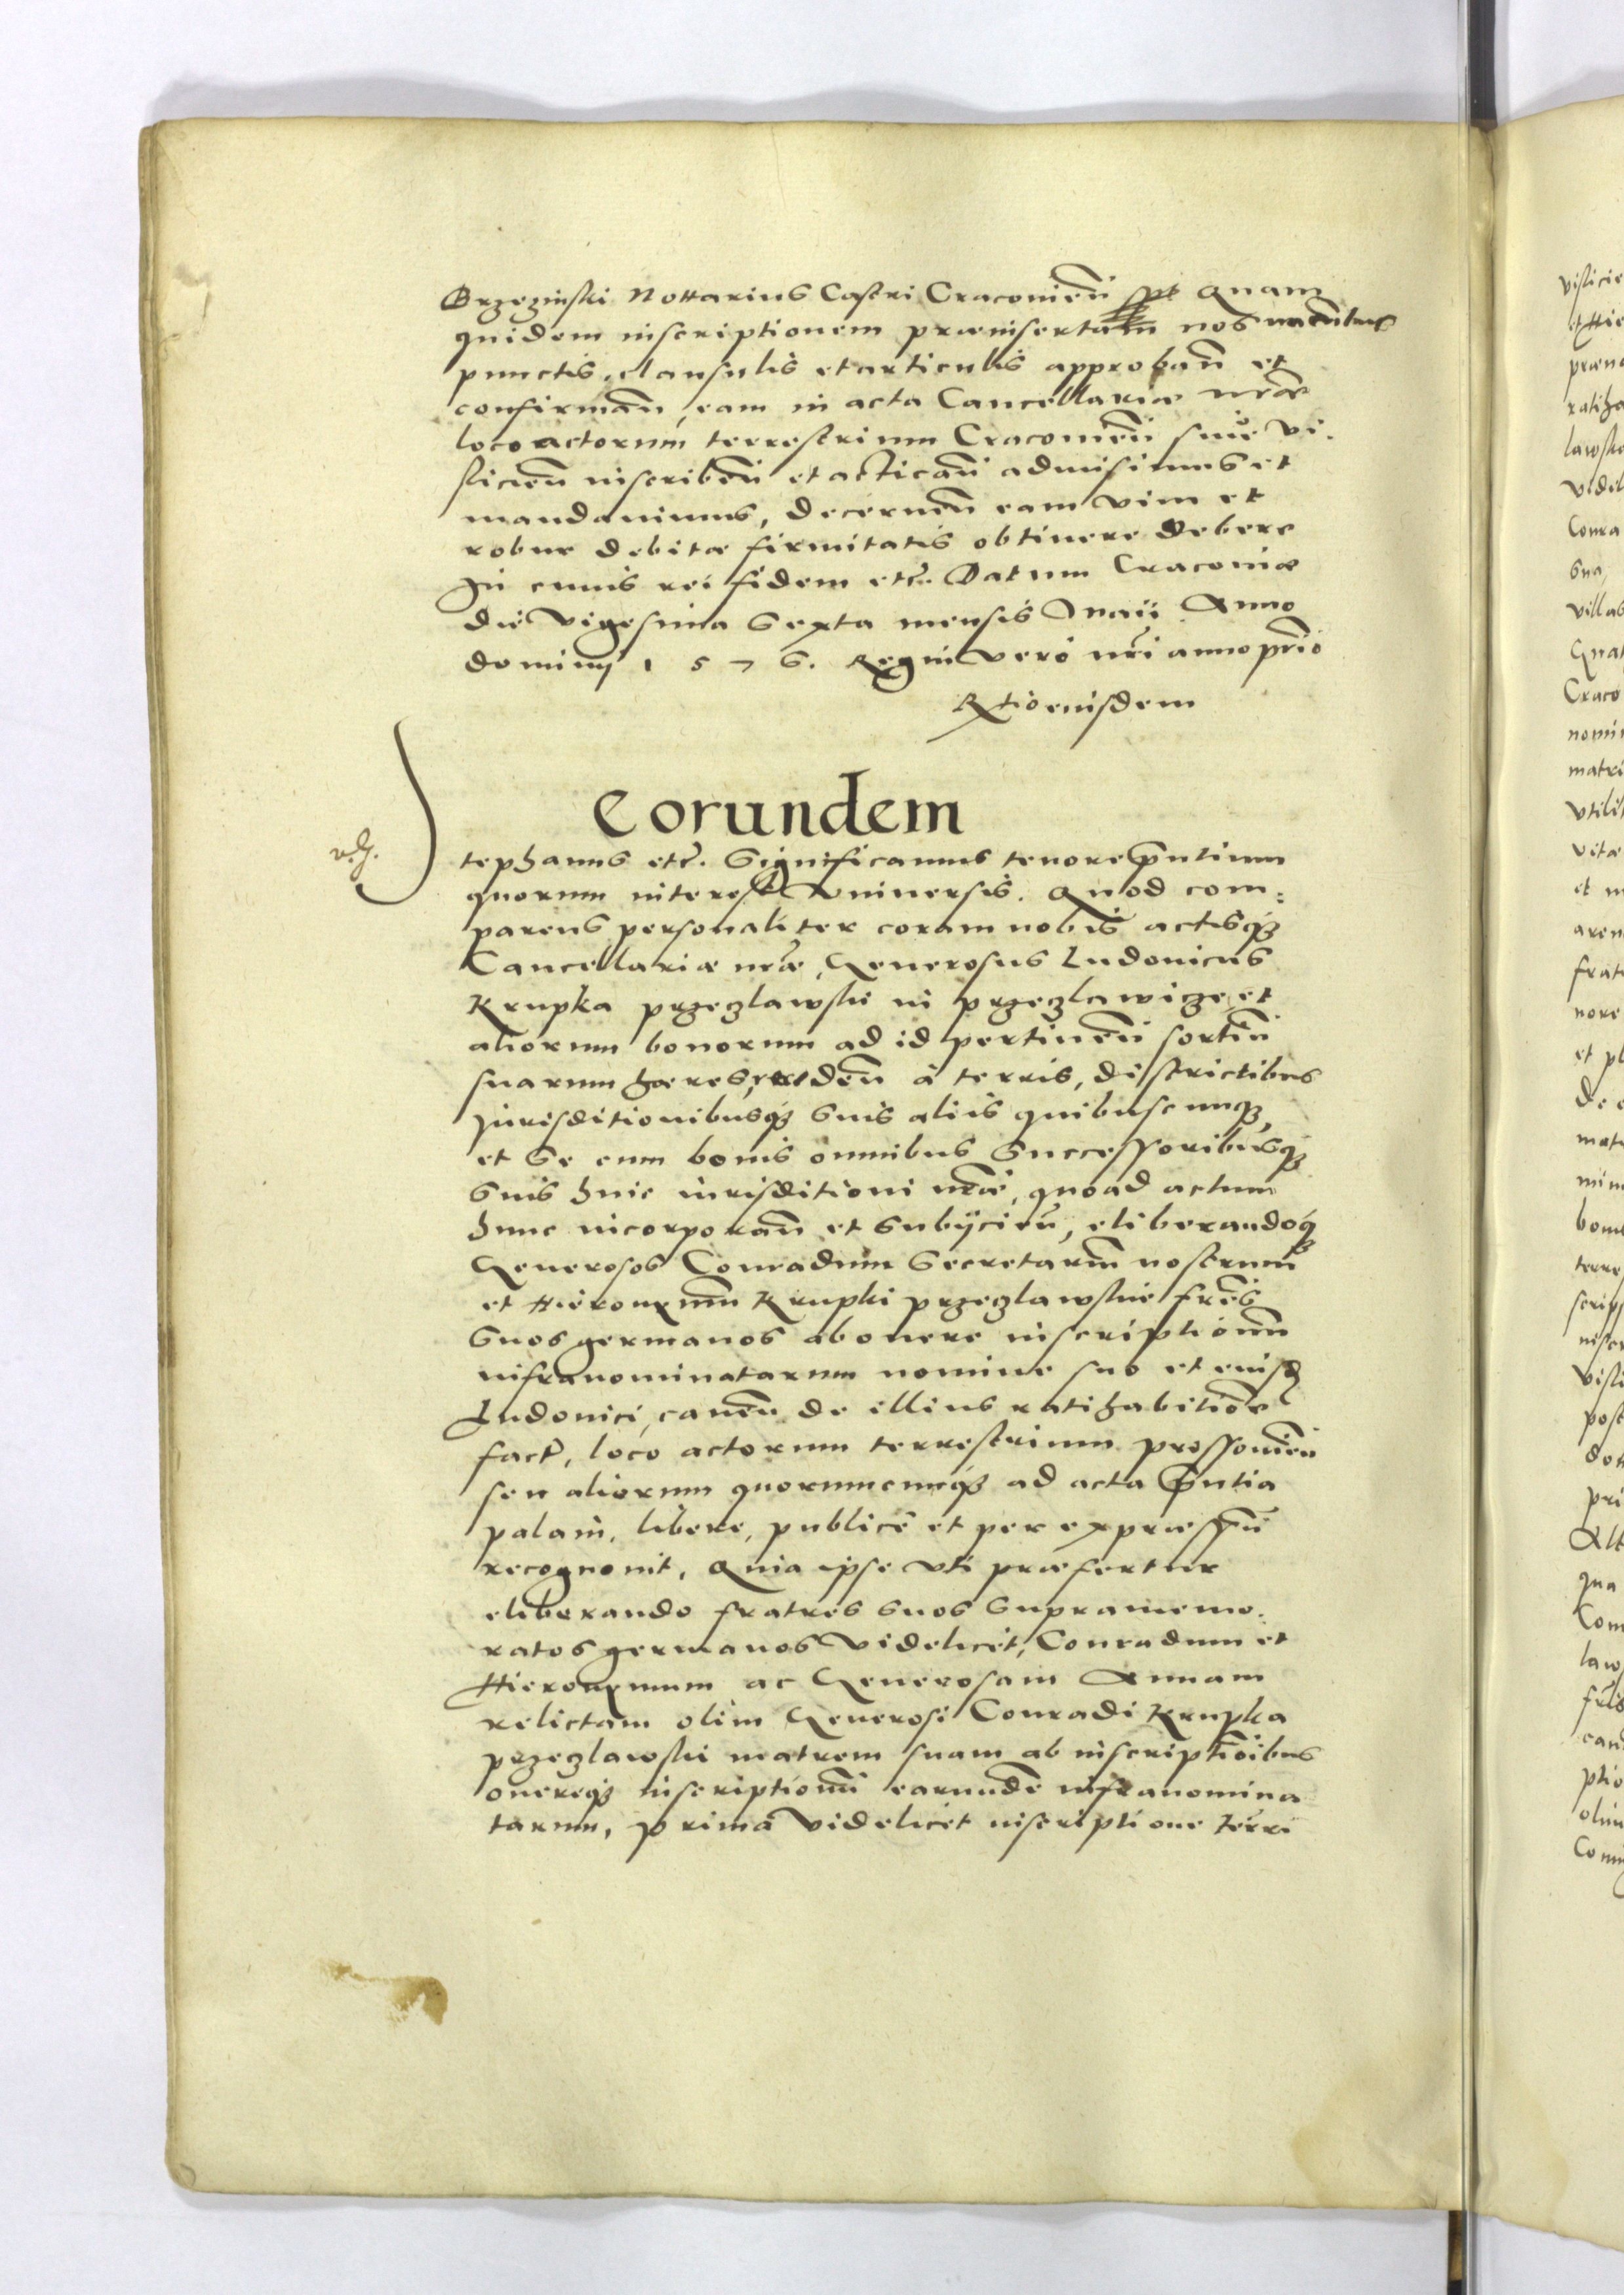 Brzezinski Nottarius Castri Craconień sspt Quam
quidem inscriptionem præinsertam nos in oībus
punctis, clausulis et articulis approbań et
confirmań, eam in acta Cancellariæ nr̃æ
loco actorum terrestrium Cracouień siue Vi-
slicień inscribeń et acticań admisimus et
mandauimus, decerneń eam vim et
robur debitæ firmitatis obtinere debere
In cuius rei fidem etc̃. Datum Cracouiæ
die Vigesima Sexta mensis Maii Anno
dominij 1576. Regni vero nr̃i anno prĩo
Rtio eiusdem
Corundem
Stephanus etc̃. Significamus tenore pñtium
quorum interest Vniuersis. Quod com:
parens personaliter coram nobis actisq;
Cancellariæ nr̃æ, Generosus Ludouicus
Krupka przeczlawski in przeczlawicze et
aliorum bonorum ad id pertineń sortiũ
suarum hæres, redeń à terris, districtibus
Jurisditionibusq; suis aliis quibuscunq;
et se cum bonis omnibus Successoribusq;
suis huic iurisditioni nr̃æ, quoad actum
hunc incorporań et subijcień, eliberandoq;
Generosos Conradum Secretariũ nostrum
et Hieronymũ Krupki przeczlawskie fr̃es
suos germanos ab onere inscriptionũ
infranominatarum nomine suo et eiusd
Ludouici, caueń de illius ratihabitiõe
fact̃, loco actorum terrestrium prossouień
seu aliorum quorumcunq; ad acta pñtia
palam, libere, publice et per expræssũ
recognouit, Quia ipse vti præfertur
eliberando fratres suos supramemo:
ratos germanos videlicet, Conradum et
Hieronymum ac Generosam Annam
relictam olim Generosi Conradi Krupka
przeczlawski matrem suam ab inscriptiõibus
onereq; inscriptionũ earundẽ infranomina
tarum, prima videlicet inscriptione terri